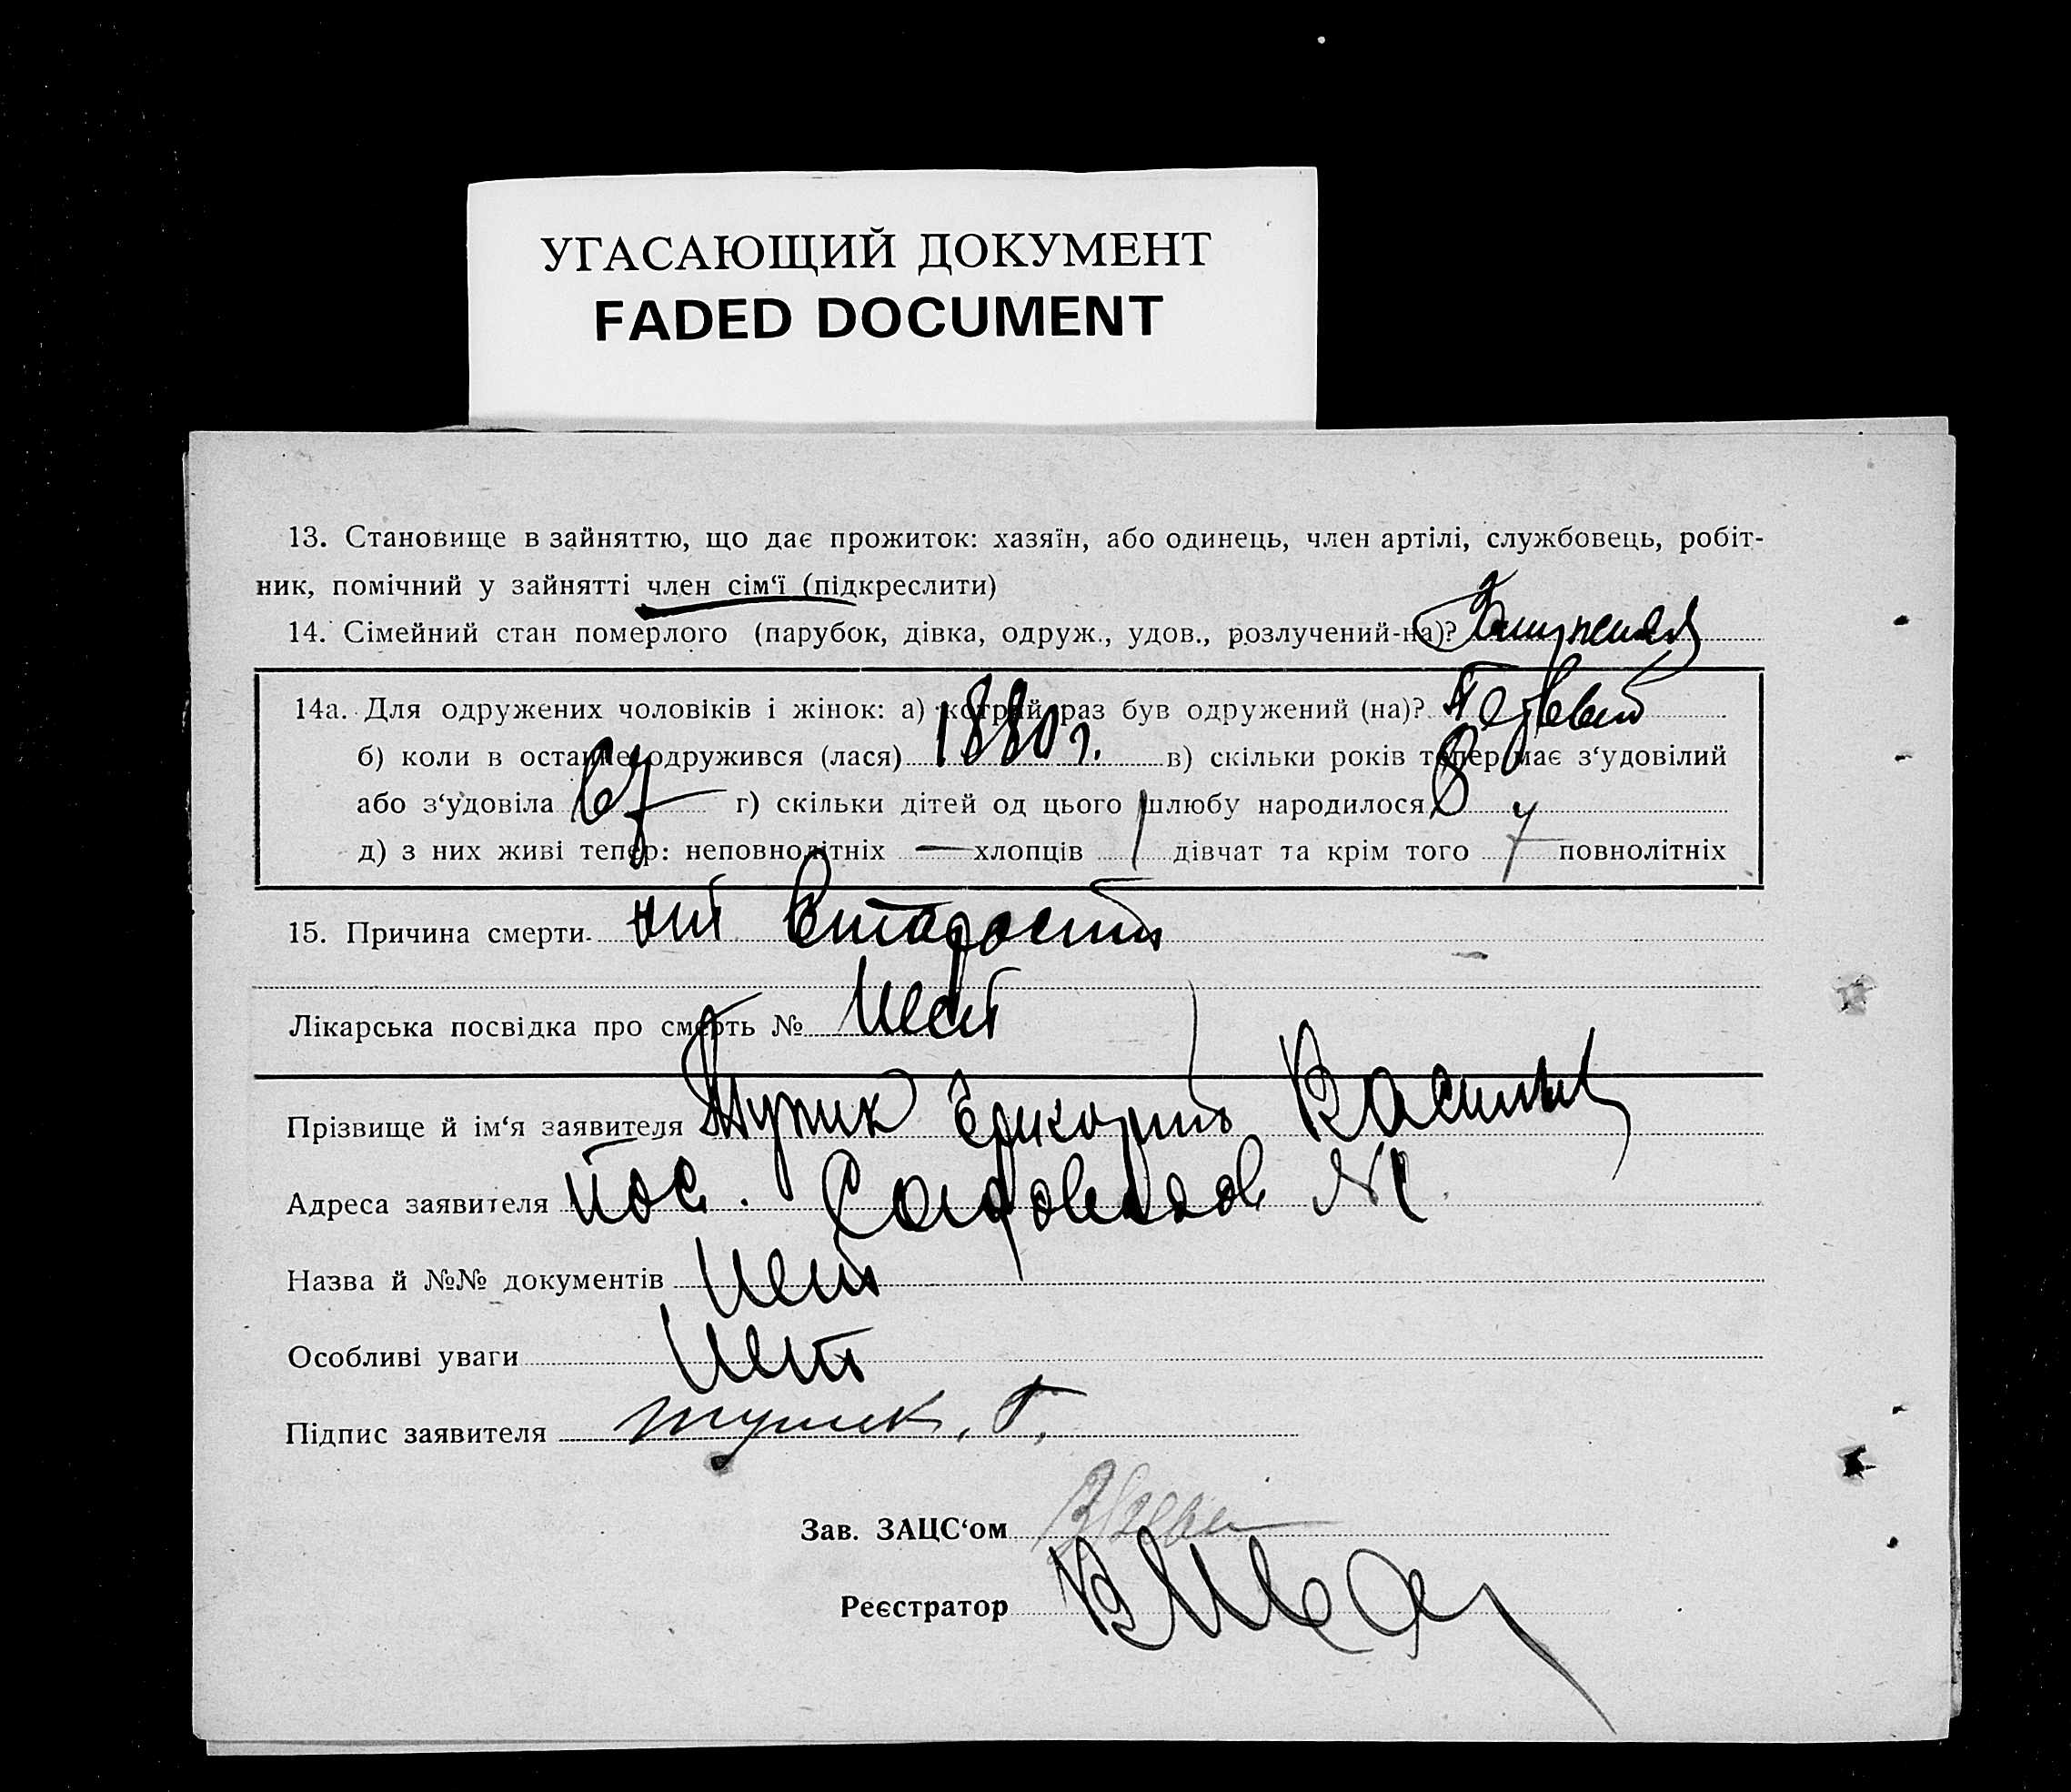 УГАСАЮЩИЙ ДОКУМЕНТ
FADED DOCUMENT
13. Становище в зайняттю, що дає прожиток: хазяїн, або одинець, член артілі, службовець, робіт-
ник, помічний у зайнятті член сім‘ї (підкреслити)
14. Сімейний стан померлого (парубок, дівка, одруж., удов., розлучений-на)? Замужняя
14а. Для одружених чоловіків і жінок: а) котрий раз був одружений (на)? Первый
б) коли в останнє одружився (лася) 1880 г. в) скільки років тепер має з‘удовілий
або з‘удовіла 67 г) скільки дітей од цього шлюбу народилося 8
д) з них живі тепер: неповнолітніх — хлопців дівчат та крім того повнолітніх
15. Причина смерти от старости
Лікарська посвідка про смерть № Нет
Прізвище й ім‘я заявителя Григорий
Адреса заявителя пос. №
Назва й №№ документів Нет
Особливі уваги Нет
Підпис заявителя Г.
Зав. ЗАЦС‘ом
Реєстратор